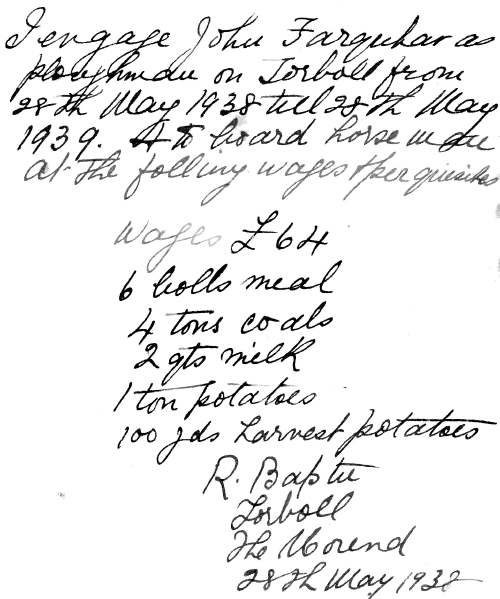 I engage John Farquhar as
ploughman on Torboll from
28th May 1938 till 28th May
1939. & to board horseman
at the folling wages & perquisites
Wages £64
6 bolls meal
4 tons coals
2 qts milk
1 ton potatoes
100 yds harvest potatoes
R. Baptie
Torboll
The Mound
28th May 1938